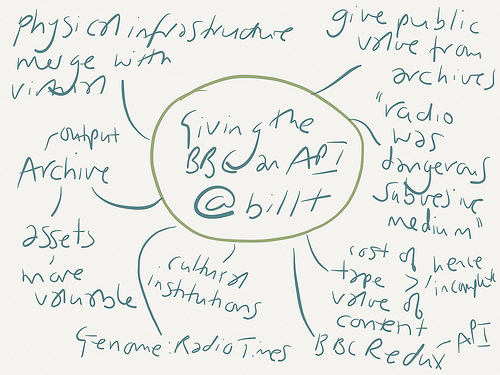 physical infrastructure
merge with
virtual
give public
value from
archives
Giving the
BBC an API
@billt
"radio
was
dangerous
subvesive
medium"
output
Archive
assets
more
valuable
cultural
institutions
cost of
tape >
value of
content
hence
incomplete
Genome: Radio Times
BBC Redux - API